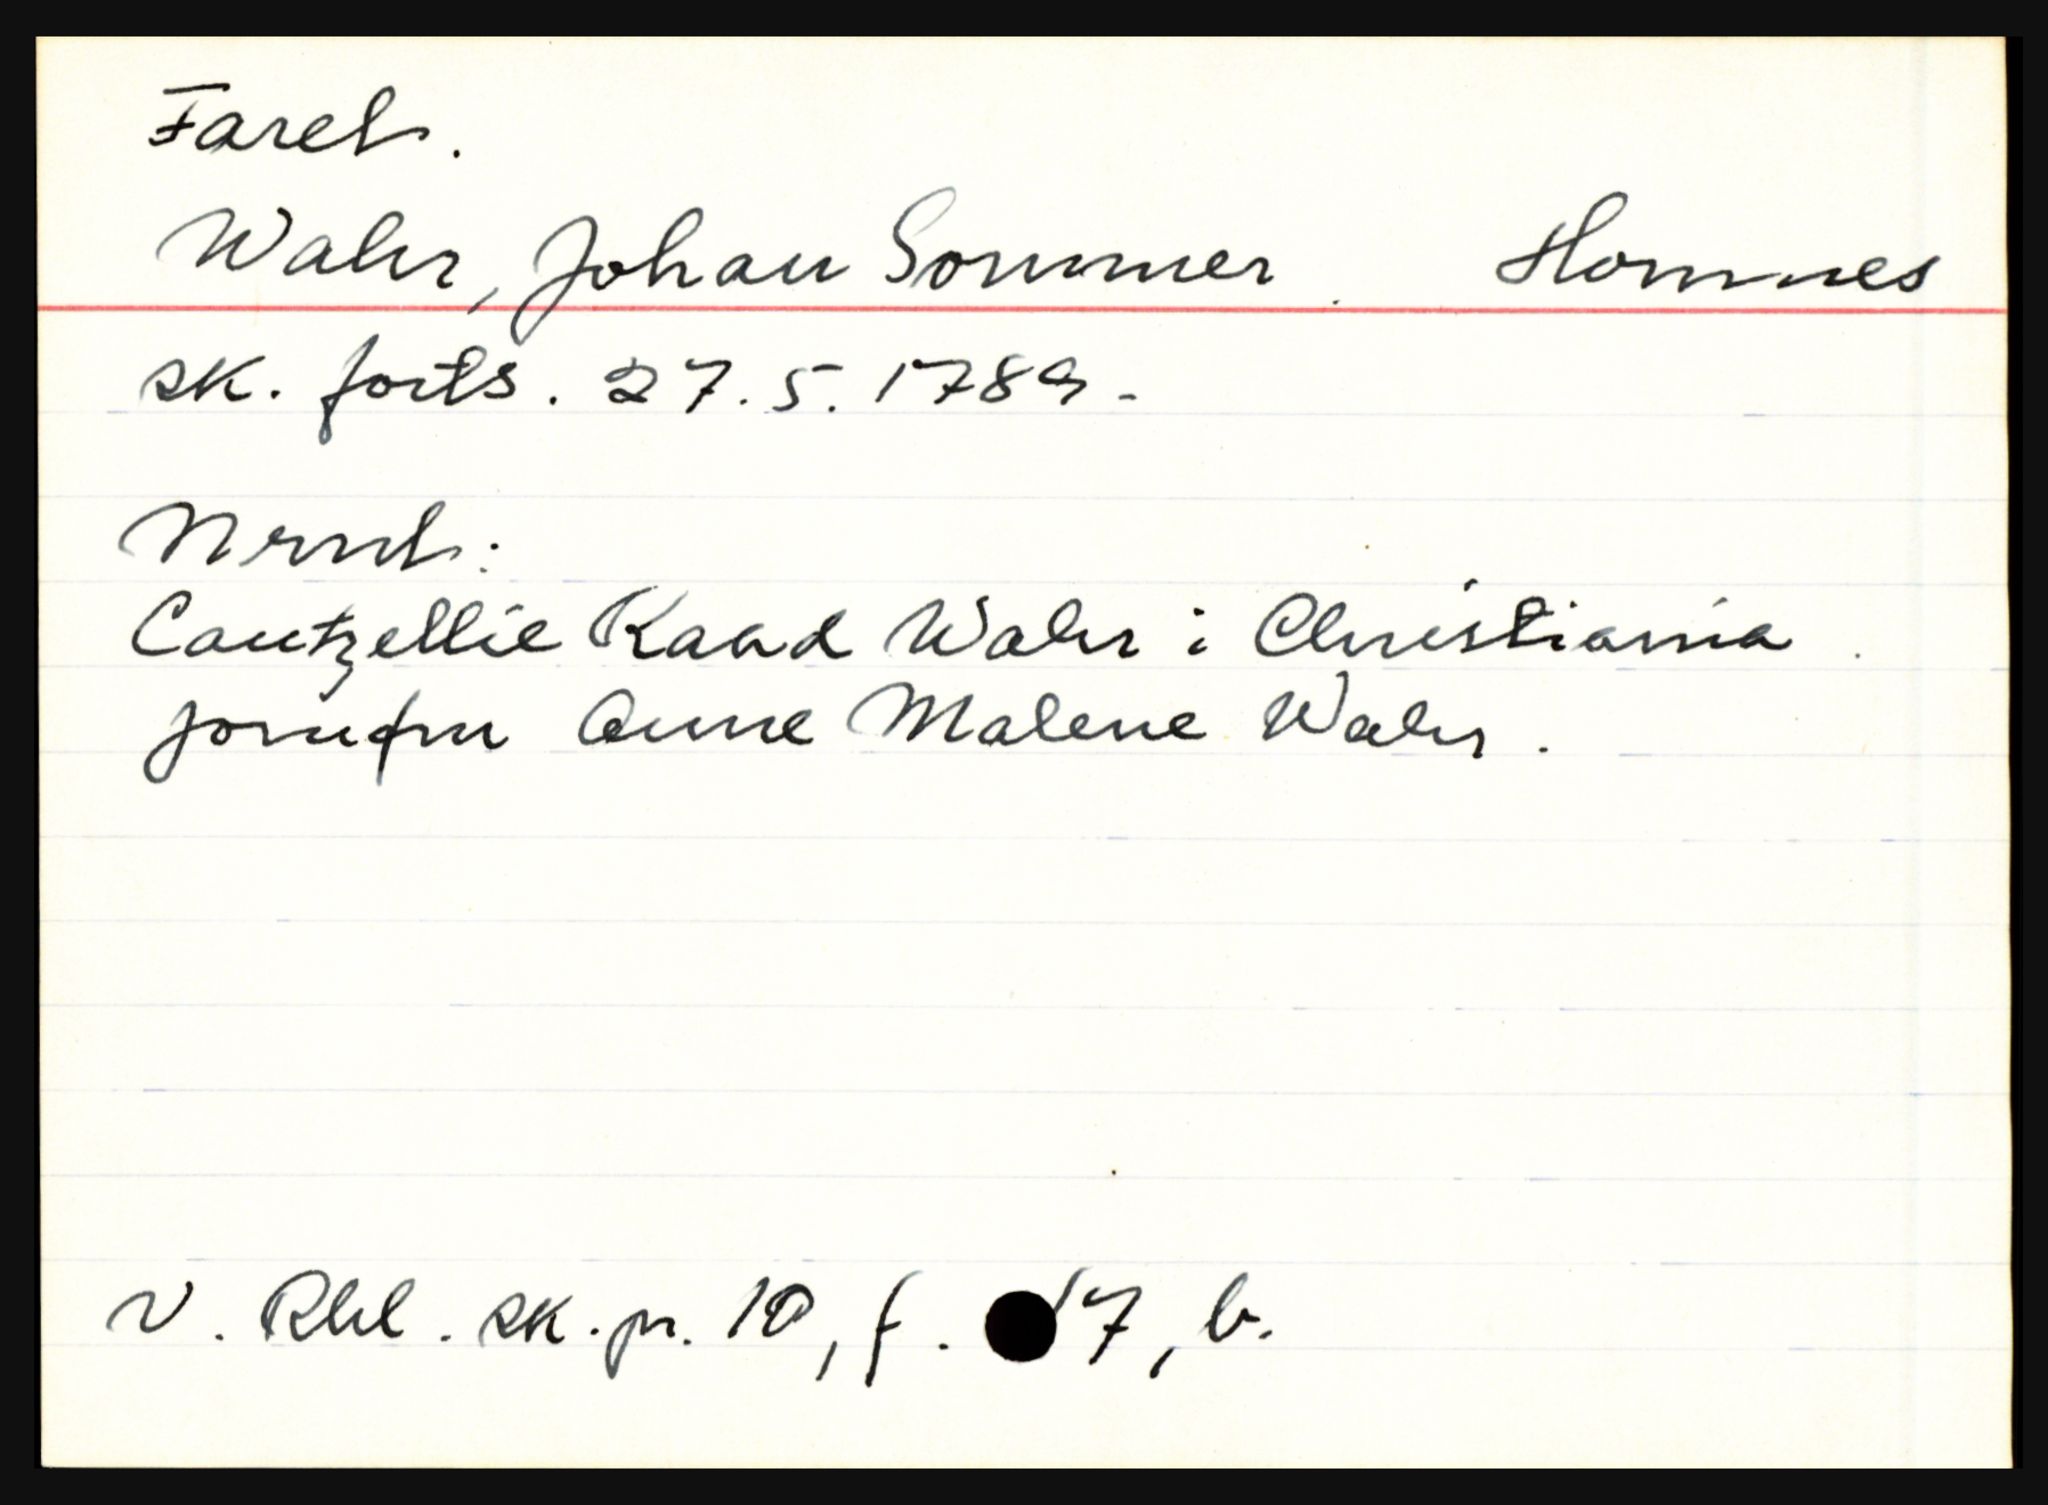 Fareb.
Wahr, Johan Sommer. Homnes
sk. forts. 27.5.1789.
Mynd:
Cantzellie Raad Wahr i Christiania.
jomfru Anne Malene Wahr.
V. Rbl. sk. pr. 10, f. 17, b.